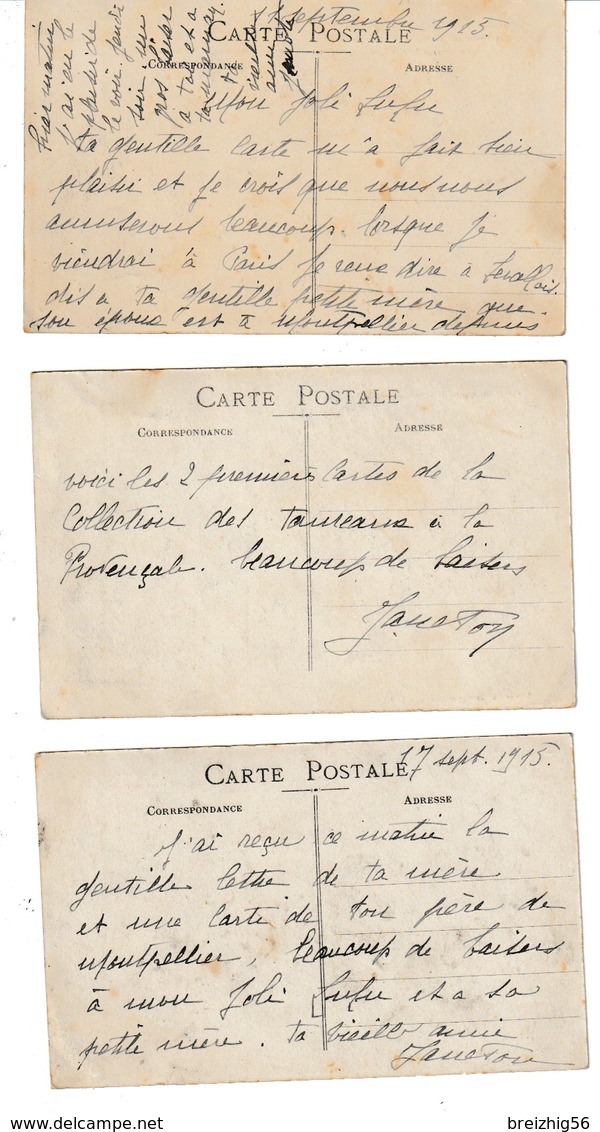 17 septembre 1915.
CARTE POSTALE
CORRESPONDANCE
ADRESSE
hier matin
j'ai eu le
plaisir de
le voir. Jendi
soir un
gros baiser
a toi et a
ta maman
ta
vieille
amie
Mon Joli Lulu
ta gentille carte m'a fait bien
plaisir et je crois que nous nous
amuserons beaucoup. lorsque je
viendrai à Paris je veux dire à Levallois.
dis a ta gentille petite mère que
son époux est à Montpellier depuis
CARTE POSTALE
CORRESPONDANCE
ADRESSE
voici les 2 premières cartes de la
Collection des taureaux à la
Provençale. beaucoup de baisers
Janeton
CARTE POSTALE
17 sept. 1915.
CORRESPONDANCE
ADRESSE
J'ai reçu ce matin la
gentille lettre de ta mère
et une carte de ton père de
Montpellier, beaucoup de baisers
à mon Joli Lulu et a sa
petite mère. ta vieille amie
Janeton
breizhig56